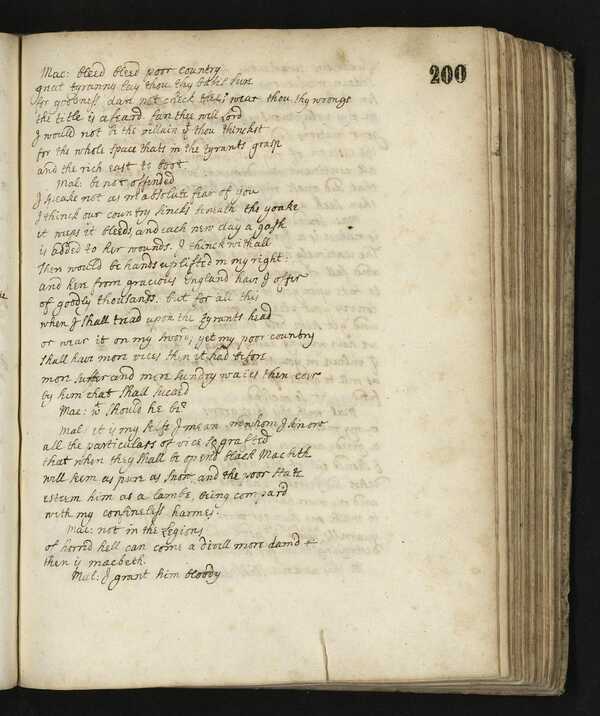 200
Mac: bleed bleed poor country
great tyranny lay thou thy basis sure
for goodness dare not check thee: wear thou thy wrongs
the title is afeard. fare thee well Lord
I would not be the villain thou thinkst
for the whole space thats in the tyrants grasp
and the rich east to boot
Mal: be not offended
I speake not as in absolute fear of you
I thinck our country sincks beneath the yoake
it weeps it bleeds and each new day a gash
is added to her wounds. I thinck withall
then would be hands uplifted in my right:
and here from gracious England have I offer
of goodly thousands. but for all this
when I shall tread upon the tyrants head
or wear it on my sword, yet my poor country
shall have more vices then it had before
more suffer and more sundry waies then ever
by him that shall succed
Mac: wt should he be?
Mal: it is my selfe I mean in whom I know
all the particulars of vice so grafted
that when they shall be opend black Macbeth
will seem as pure as snow, and the poor state
esteem him as a lambe, being compard
with my confineless harmes.
Mac: not in the Legions
of horred hell can come a divill more damd
then is macbeth.
Mal: I grant him bloody